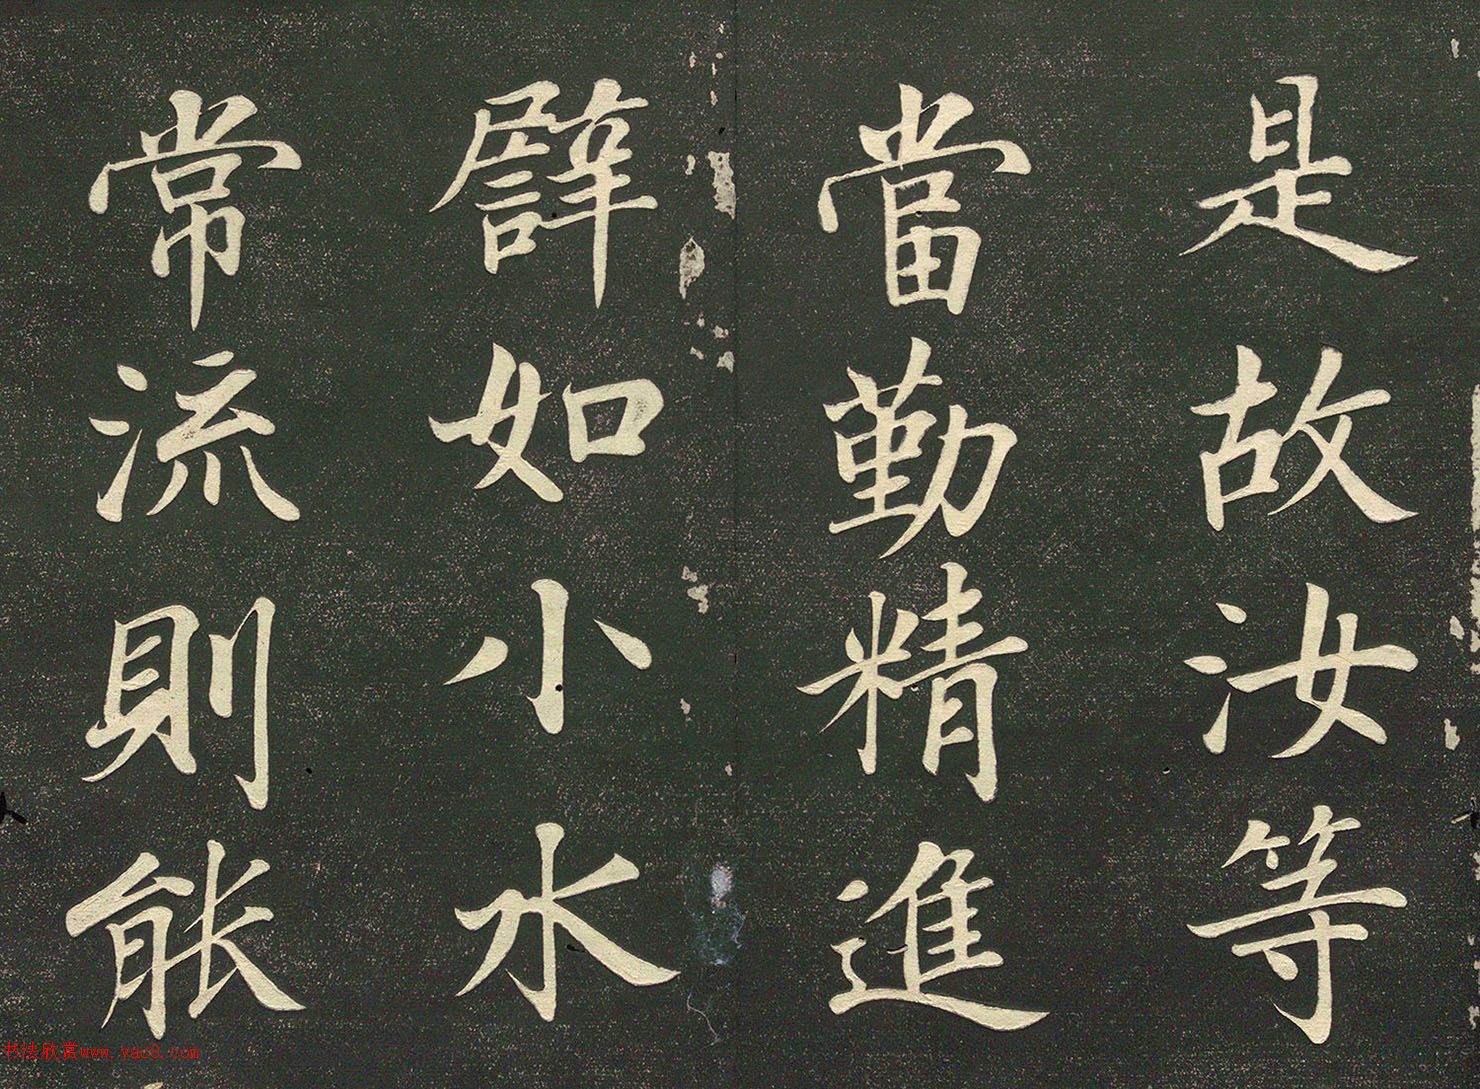 是故汝等
當勤精進
譬如小水
常流則能
书法欣赏www.yac8.com